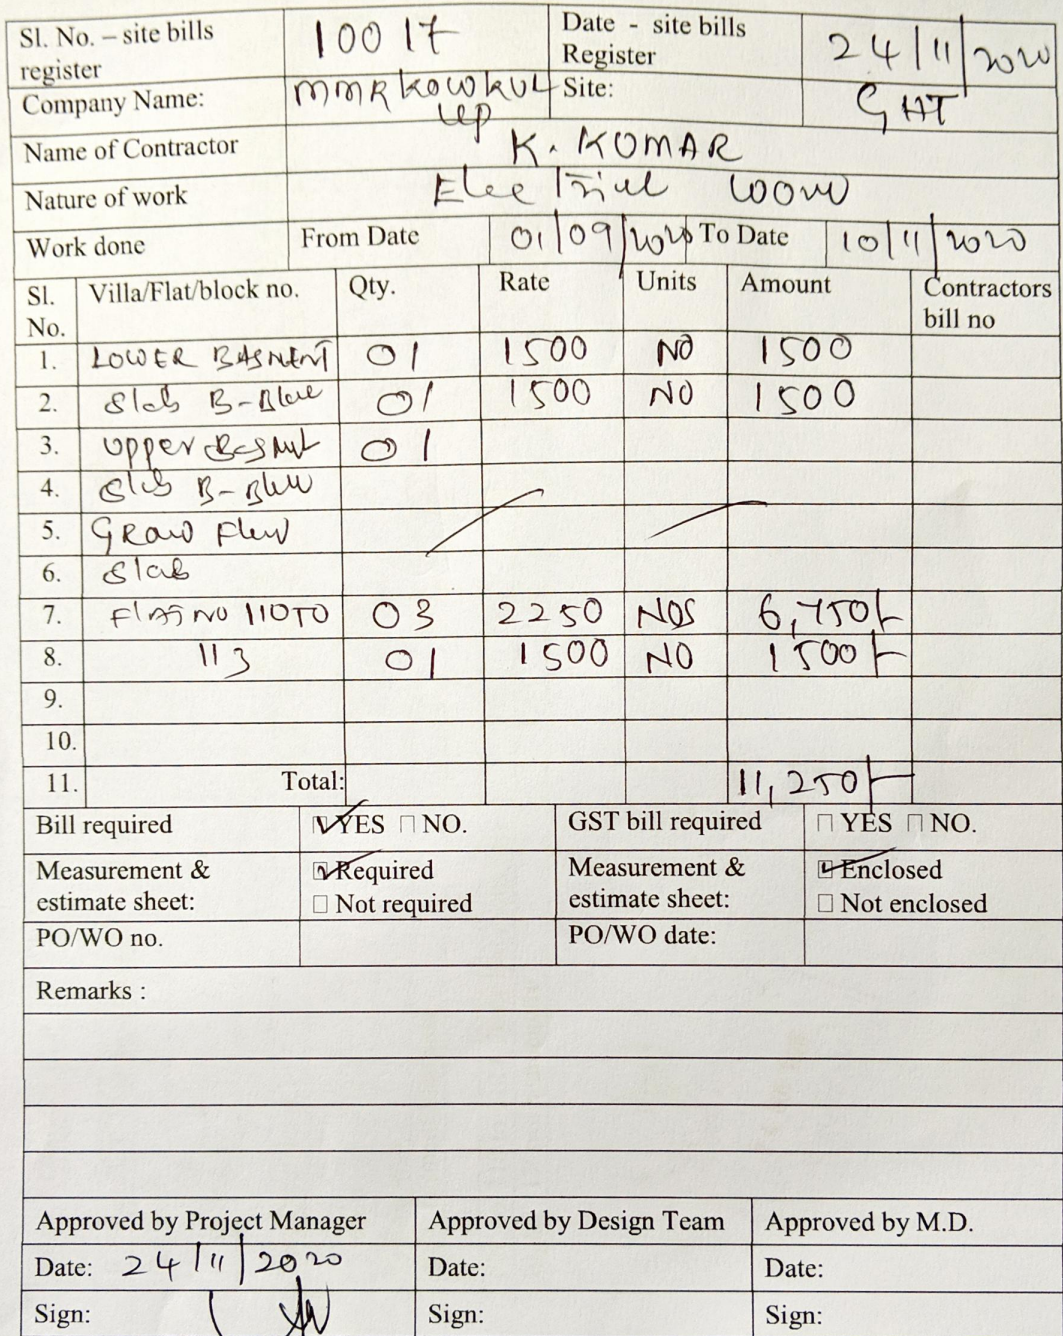 Sl. No. – site bills register 10017 Date - site bills Register 24/11/2020
Company Name: MMR KOWKUL LLP Site: GHT
Name of Contractor K. KUMAR
Nature of work
Work done From Date 01/09/2020 To Date 10/11/2020
Sl. No. Villa/Flat/block no. Qty. Rate Units Amount Contractors bill no
1. LOWER BASMENT 01 1500 NO 1500
2. Slab B- 01 1500 NO 1500
3. Upper 01
4. Slab B-
5.
6. Slab
7. NO 110 TO 03 2250 NOS 6,750/-
8. 113 01 1500 NO 1500/-
9.
10.
11. Total: 11,250/-
Bill required ☑ YES ☐ NO. GST bill required ☐ YES ☐ NO.
Measurement & estimate sheet: ☑ Required Measurement & estimate sheet: ☑ Enclosed
☐ Not required ☐ Not enclosed
PO/WO no. PO/WO date:
Remarks :
Approved by Project Manager Approved by Design Team Approved by M.D.
Date: 24/11/2020 Date: Date:
Sign: Sign: Sign: